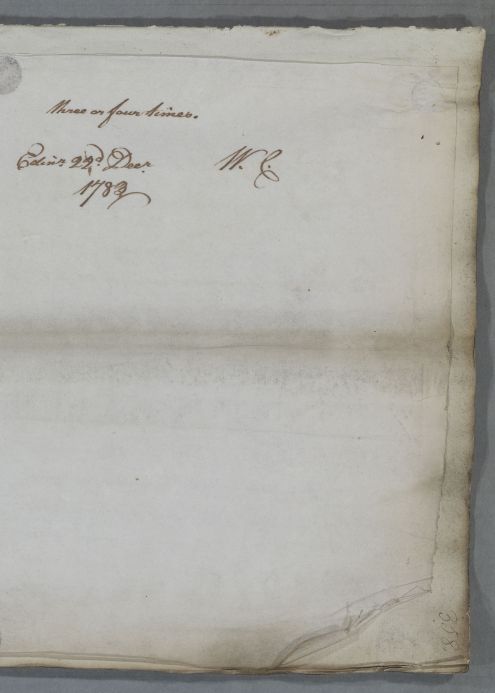 three or four times.
Edinr. 22d. Decr. W. C.
1783
358